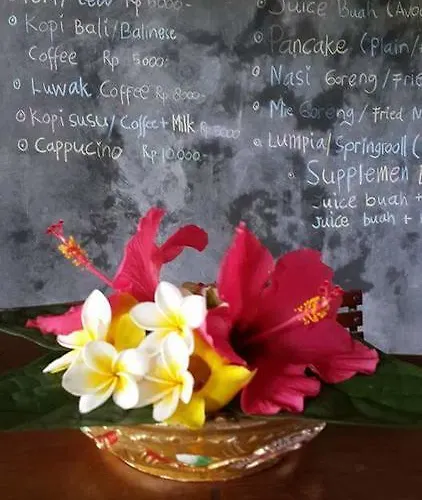 Rp 5000-
Kopi Bali/Balinese
Coffee Rp 5000-
Luwak Coffee Rp 8000-
Kopi susu/Coffee+Milk Rp 5000
Cappucino Rp 10.000-
Juice Buah (Avo
Pancake (Plain/
Nasi Goreng/Frie
Mie Goreng/Fried N
Lumpia/Springroll (
Supplemen
juice buah +
juice buah +